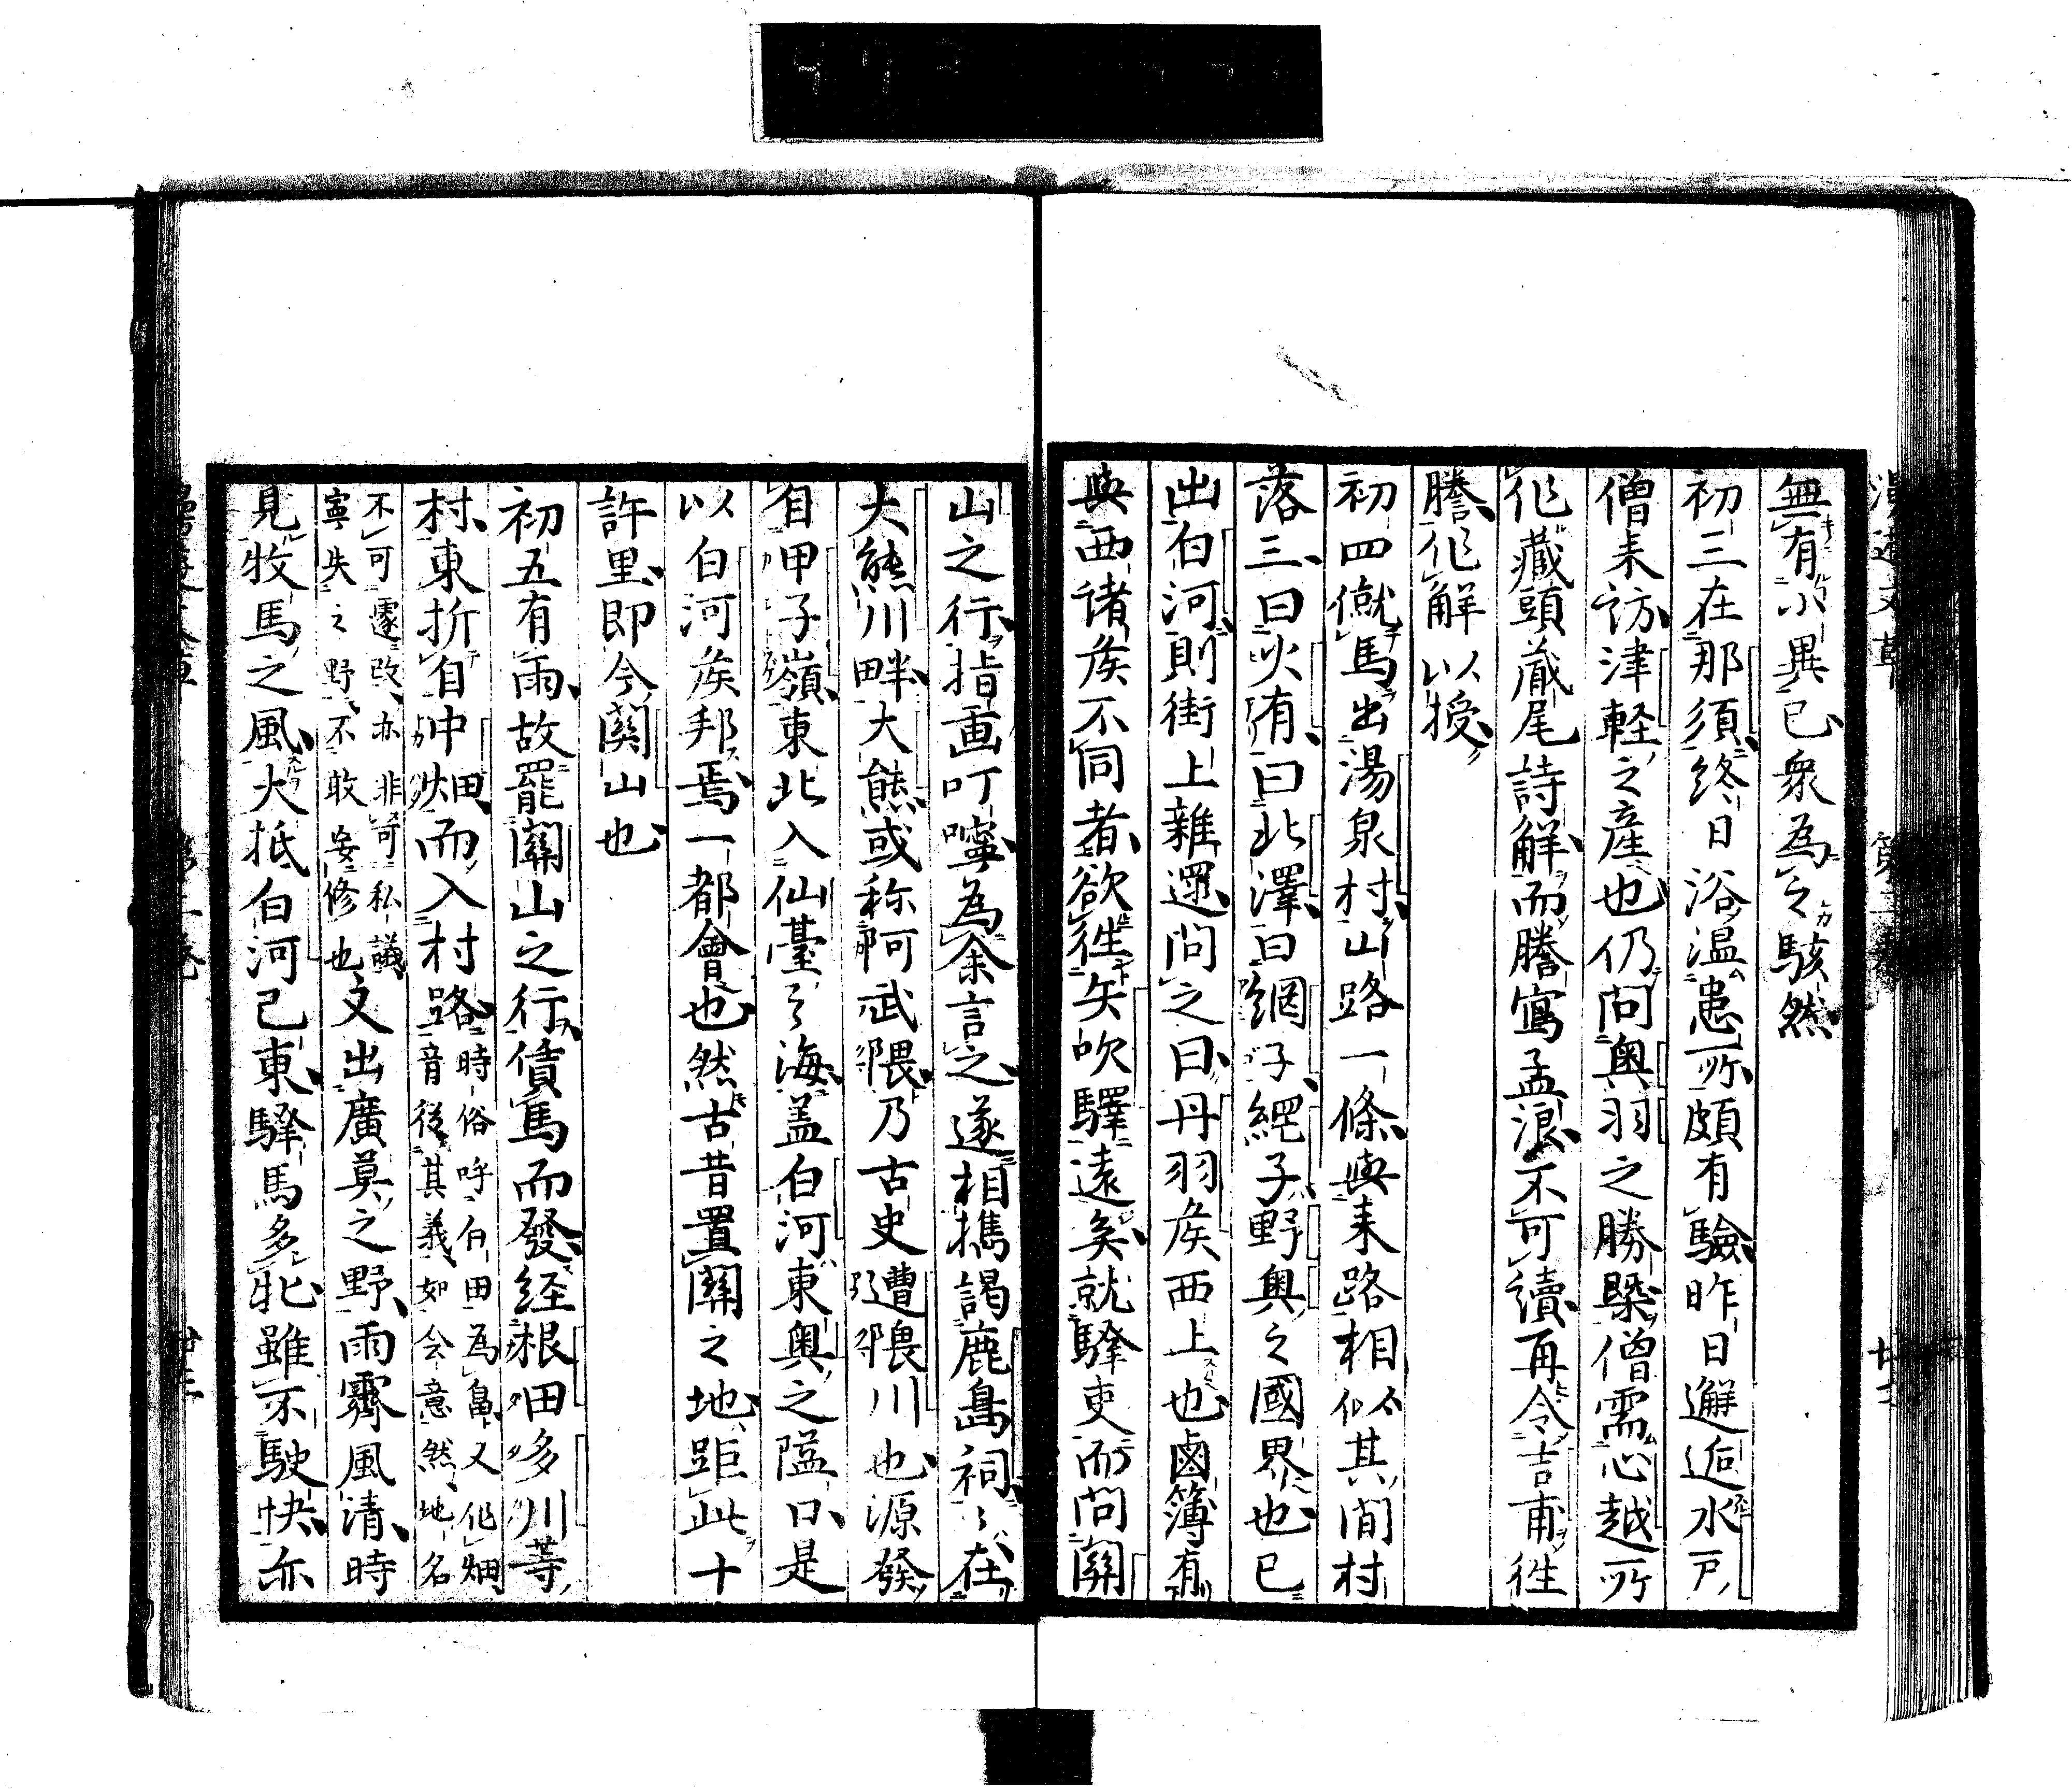 無有小異已衆為之駭然
初三在那須終日浴温患所頗有驗昨日邂逅水戸
僧来訪津軽之産也仍問奥羽之勝槩僧需心越所
作藏頭蔵尾詩解而謄寫孟浪不可讀再令吉甫徃
謄作解以授
初四僦馬出湯泉村山路一條與来路相似其間村
落三曰火有曰北澤曰網子網子野奥之國界也已
出白河則街上雜遝問之曰丹羽矦西上也鹵簿有
與西诸矦不同者欲徃矢吹驛遠矣就驛吏而問關
山之行指画叮嚀為余言之遂相攜謁鹿島祠々在
大熊川畔大熊或称阿武隈乃古史遭隈川也源發
自甲子嶺東北入仙臺之海盖白河東奥之隘口是
以白河矦邦焉一都會也然古昔置關之地距此十
許里即今關山也
初五有雨故罷關山之行債馬而發経根田多川等
村東折自中畑而入村路時俗呼白田為畠又作畑
音後其義如会意然地名
不可遽改亦非可私議
寧失之野不敢妄修也又出廣莫之野雨霽風清時
見牧馬之風大抵白河已東驛馬多牝雖不駛快亦